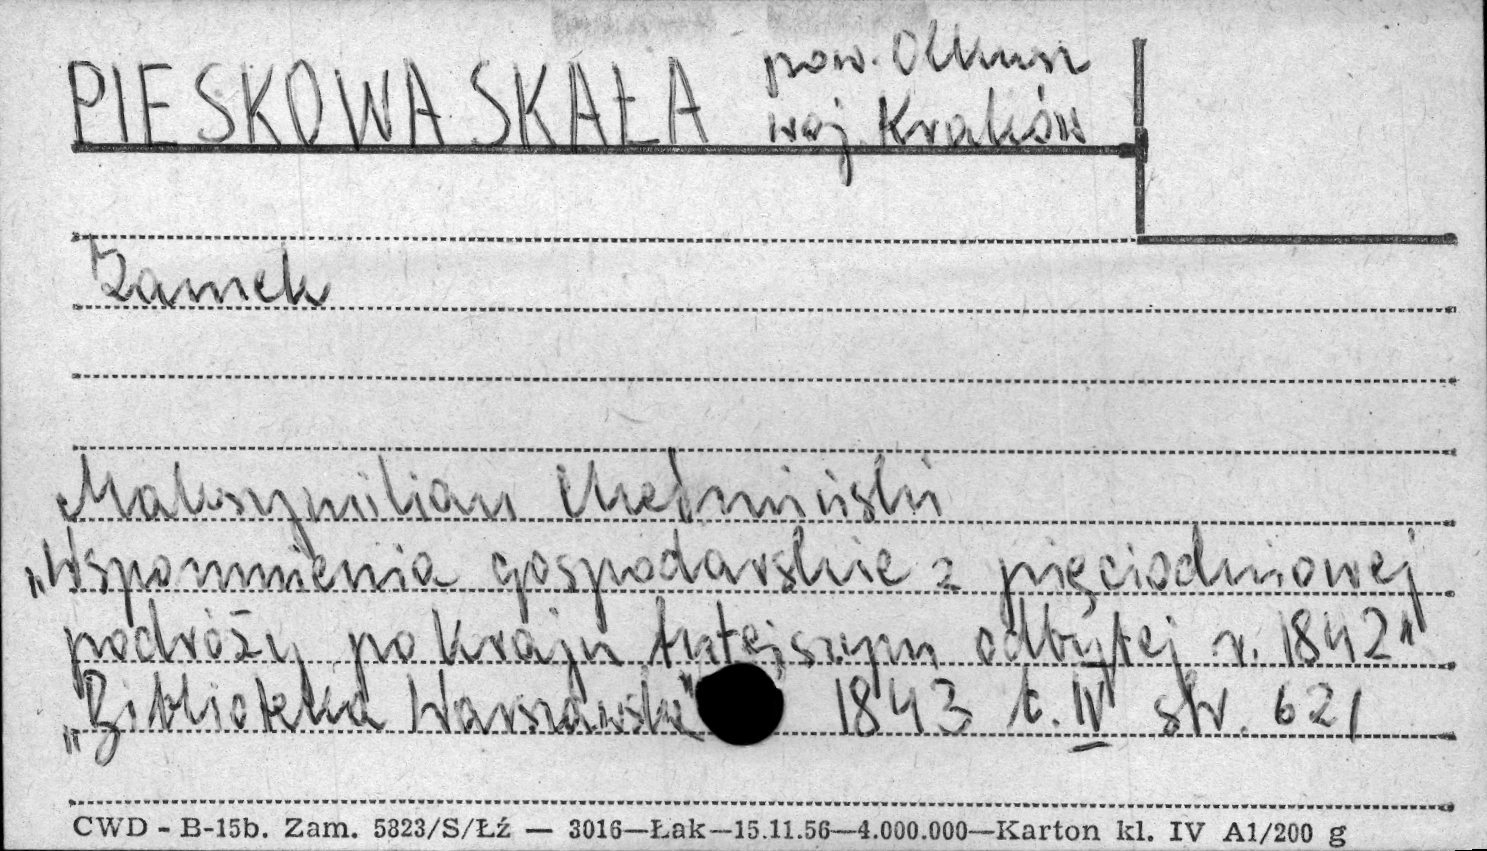 PIESKOWA SKAŁA pow. Olkusz
woj. Kraków
Zamek
Maksymilian
„Wspomnienia gospodarskie z pięciodniowej
podróży po kraju tutejszym odbytej r. 1842"
„Biblioteka Warszawska" 1843 t. IV str. 621
CWD - B-15b. Zam. 5823/S/Łź — 3016—Łak—15.11.56—4.000.000—Karton kl. IV A1/200 g